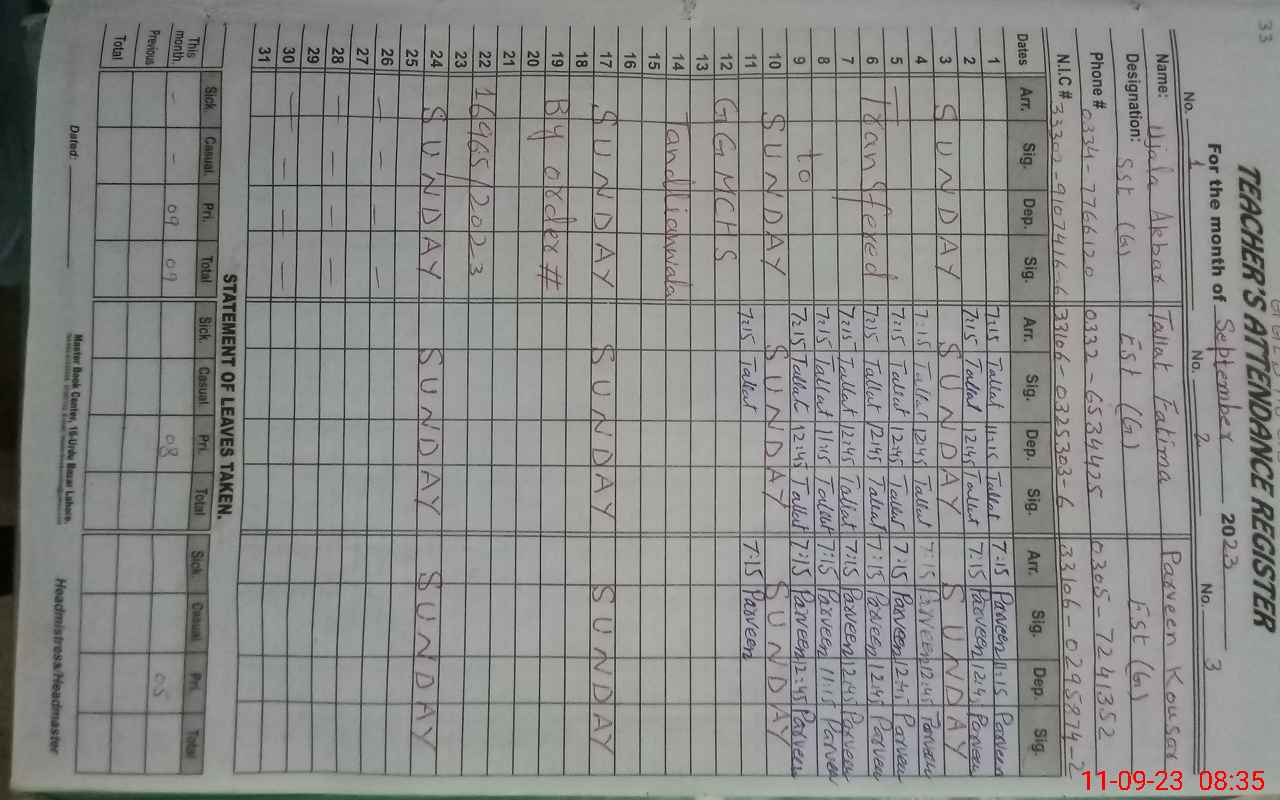 33
TEACHER'S ATTENDANCE REGISTER
For the month of September 2023
No. 1 No. 2 No. 3
Name: Ujala Akbar Tallat Fatima Parveen Kousar
Designation: SST (G) EST (G) EST (G)
Phone # 0334-7766120 0332-6534425 0305-7241352
N.I.C # 33302-9107416-6 33106-0325303-6 33106-0295874-2
Dates Arr. Sig. Dep. Sig. Arr. Sig. Dep. Sig. Arr. Sig. Dep. Sig.
1 7:15 Tallat 11:15 Tallat 7:15 Parveen 11:15 Parveen
2 7:15 Tallat 12:45 Tallat 7:15 Parveen 12:45 Parveen
3 SUNDAY SUNDAY SUNDAY
4 7:15 Tallat 12:45 Tallat 7:15 Parveen 12:45 Parveen
5 7:15 Tallat 12:45 Tallat 7:15 Parveen 12:45 Parveen
6 Transfered 7:15 Tallat 12:45 Tallat 7:15 Parveen 12:45 Parveen
7 7:15 Tallat 12:45 Tallat 7:15 Parveen 12:45 Parveen
8 7:15 Tallat 11:15 Tallat 7:15 Parveen 11:15 Parveen
9 to 7:15 Tallat 12:45 Tallat 7:15 Parveen 12:45 Parveen
10 SUNDAY SUNDAY SUNDAY
11 7:15 Tallat 7:15 Parveen
12 GGMCHS
13
14 Tandlianwala
15
16
17 SUNDAY SUNDAY SUNDAY
18
19 By order #
20
21
22 16965/2023
23
24 SUNDAY SUNDAY SUNDAY
25
26 — — —
27
28 — — —
29
30 — — — —
31
STATEMENT OF LEAVES TAKEN.
Sick. Casual. Pri. Total Sick. Casual. Pri. Total Sick. Casual. Pri. Total
This month. - - 09 09 08 05
Previous
Total
Dated: Master Book Center, 16-Urdu Bazar Lahore. Headmistress/Headmaster
11-09-23 08:35